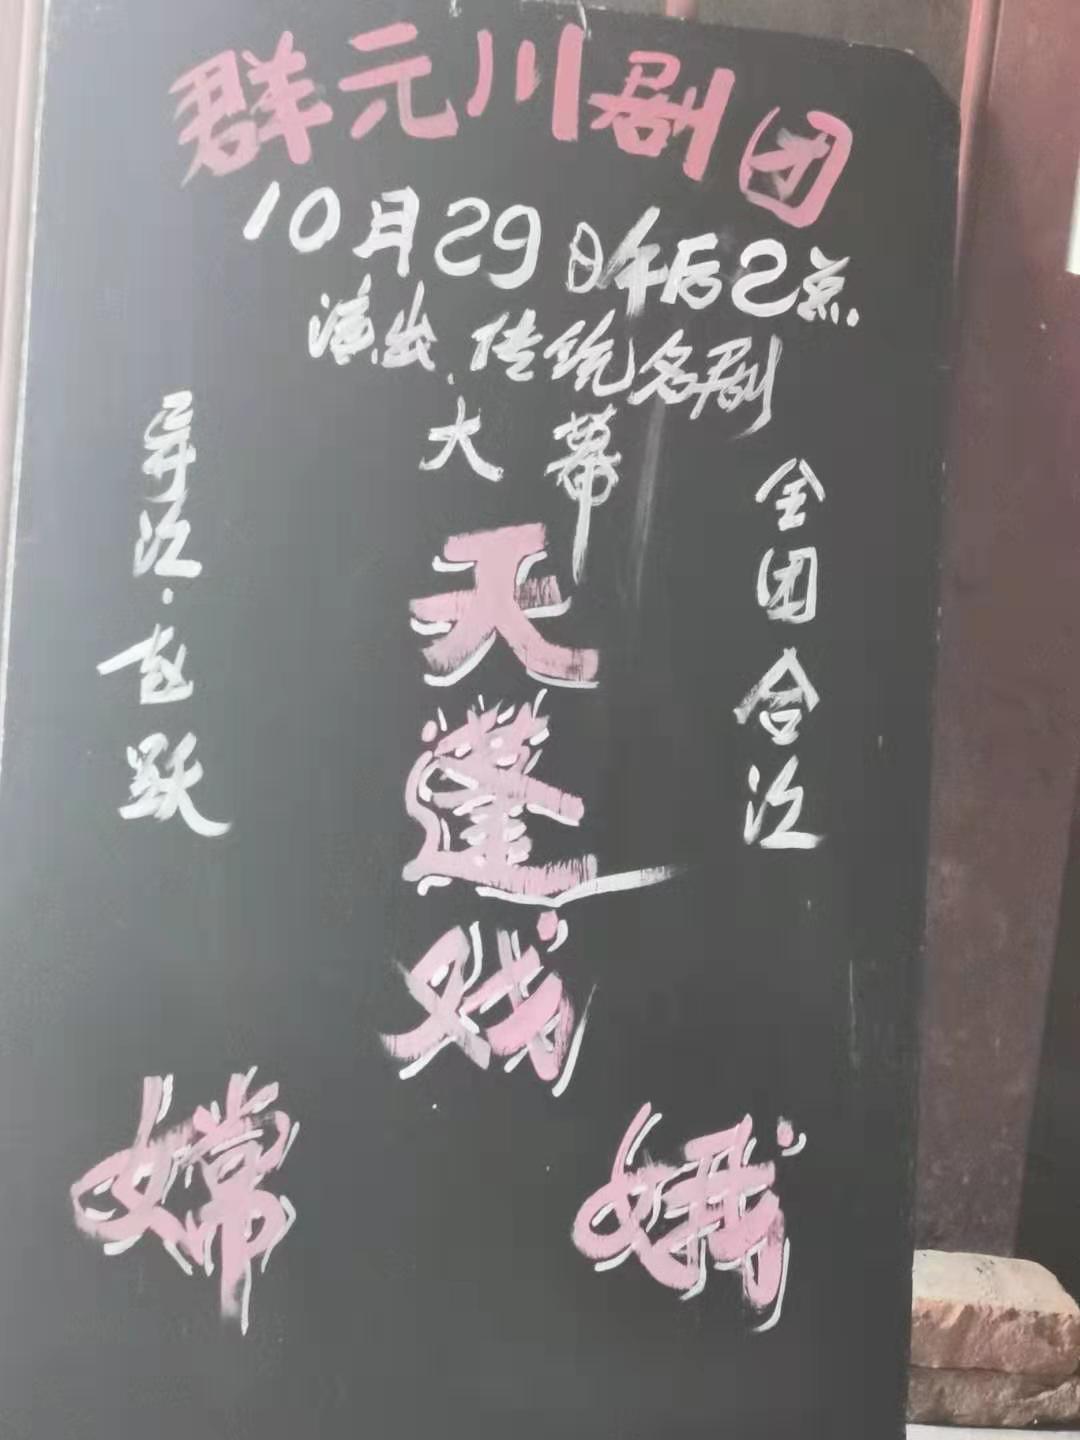 群元川剧团
10月29日午后2点
演出.传统名剧
大幕
天蓬戏
嫦娥
导演.赵跃
全团合演